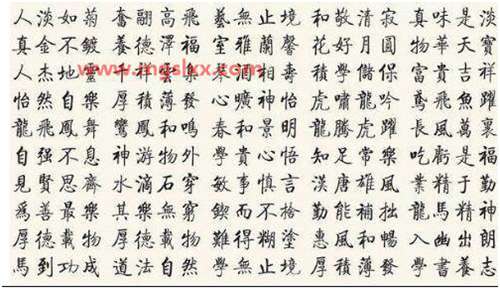 人淡如菊 奮翮高飛 藝無止境 和敬清寂 真味是淡
真金不鍍 養德澤福 室雅蘭馨 花好月圓 物華天寶
人杰地靈 千祥雲集 相壽 學 富貴吉祥
怡然自樂 厚積薄發 心曠神怡 虎嘯龍吟 鳶飛魚躍
龍飛鳳舞 鸞鳳和鳴 春和景明 龍騰虎躍 長風萬裏
自强不息 神游物外 學貴心悟 知足常樂 吃虧是福
見賢思齊 水滴石穿 敏事慎言 漢唐雄風 業精于勤
爲善最樂 其樂無窮 鍥而不捨 勤能補拙 龍馬精神
厚德載物 厚德載物 難得糊塗 惠風和暢 入幽出朗
馬到功成 道法自然 學無止境 厚積薄發 學書養志